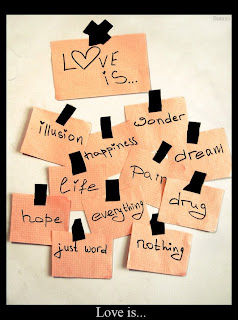 L♡VE
is...
wonder
illusion
happiness
dream
life
pain
hope
everything
drug
just word
nothing
Love is...